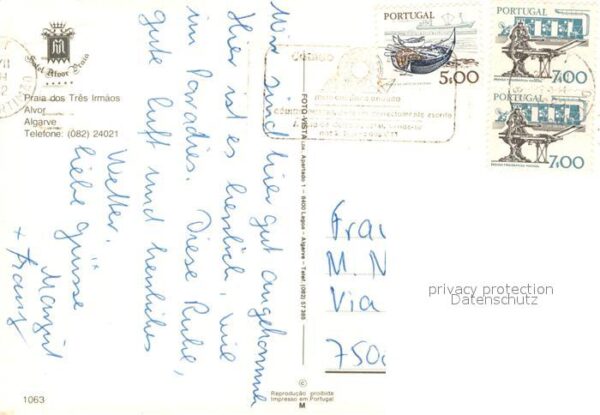 Hotel Alvor Praia
★★★★★
Praia dos Três Irmãos
Alvor
Algarve
Telefone: (082) 24021
Wir sind hier gut angekommen
Hier ist es herrlich, wie
im Paradies. Diese Ruhe,
gute Luft und herrliches
Wetter.
liebe Grüsse
Margrit
+ Franz
1063
FOTO-VISTA Lda. Apartado 1 - 8400 Lagoa - Algarve - Telef. (082) 57 365
©
Reprodução proibida
Impresso em Portugal
M
CÓDIGO
PORTUGAL
5.00
PORTUGAL
7.00
7.00
Frau
M. N
Via
750
privacy protection
Datenschutz